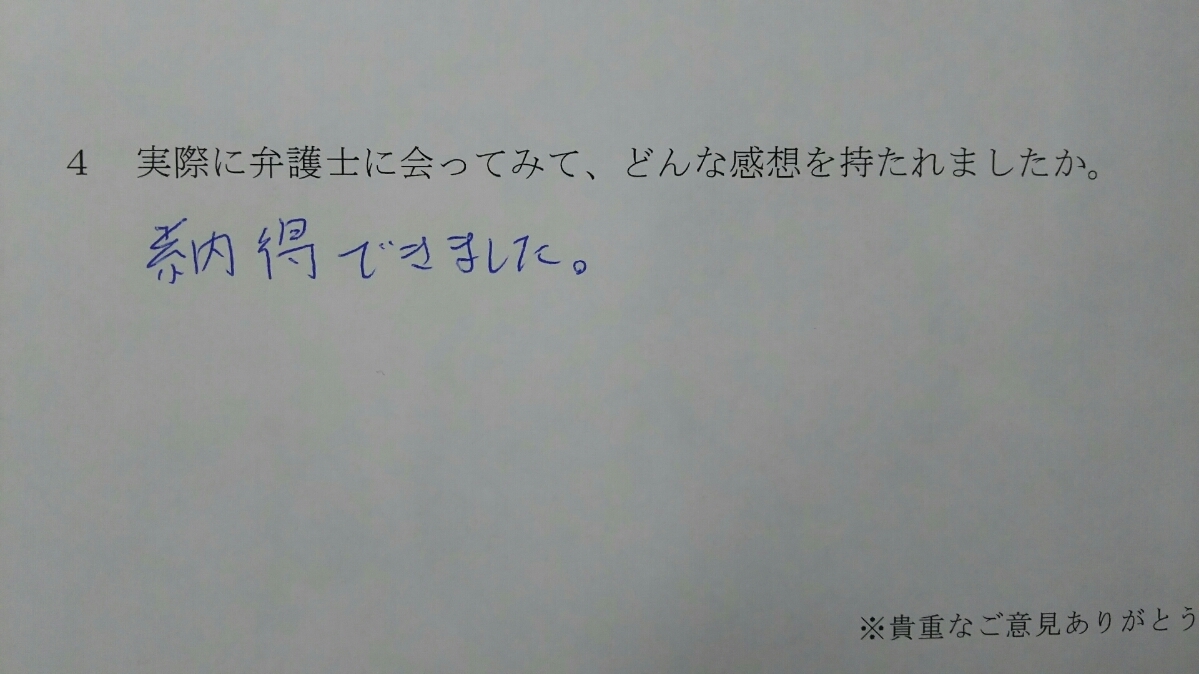 4 実際に弁護士に会ってみて、どんな感想を持たれましたか。
納得できました。
※貴重なご意見ありがとう